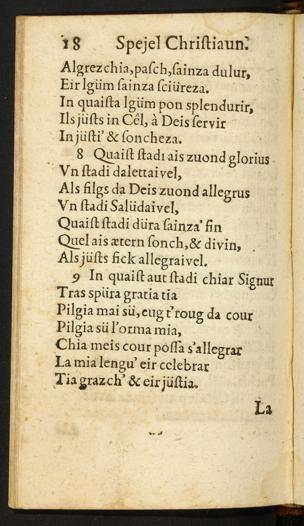 18 Spejel Chriſtiaun.
Algrezchia, paſch, ſainza dulur,
Eir lgüm ſainza ſciüreza.
In quaiſta lgüm pon splendurir,
Ils jüſts in Cêl, à Deis ſervir
In jüſti' & ſoncheza.
8 Quaiſt ſtadi ais zuond glorius
Vn ſtadi dalettaivel,
Als filgs da Deis zuond allegrus
Vn ſtadi Salüdaivel,
Quaiſt ſtadi düra ſainza' fin
Quel ais ætern ſonch, & divin,
Als jüſts fick allegraivel.
9 In quaiſt aut ſtadi chiar Signur
Tras spüra gratia tia
Pilgia mai sü, eug t'roug da cour
Pilgia sü l'orma mia,
Chia meis cour poſſa s'allegrar
La mia lengu' eir celebrar
Tia grazch' & eir jüſtia.
La